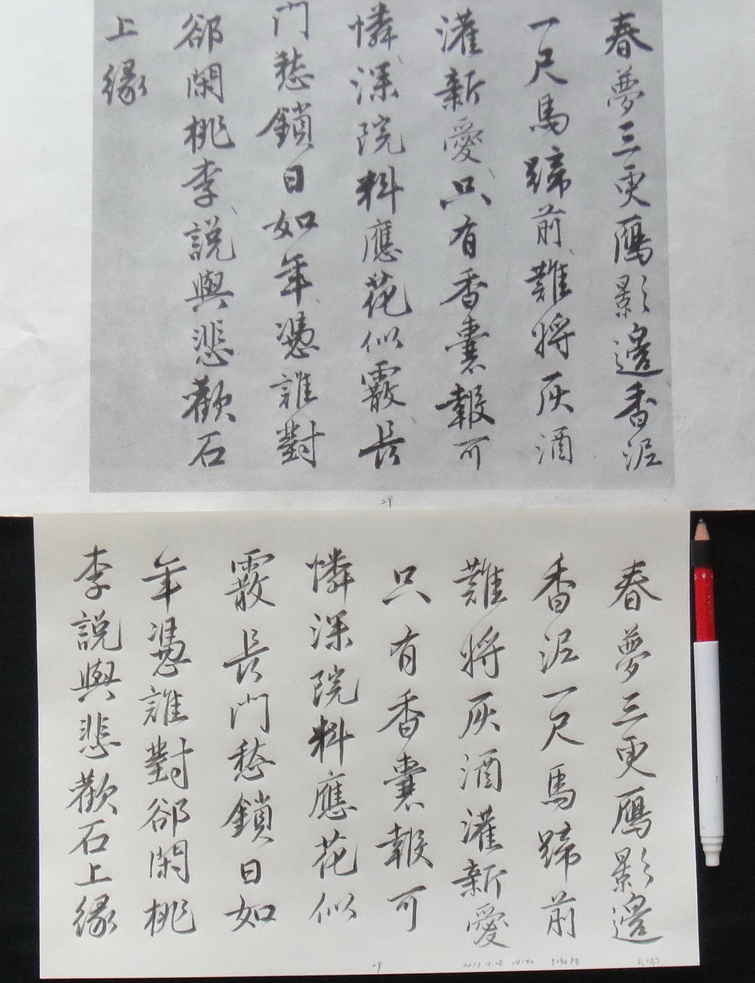 春夢三更鴈影邊香泥
一尺馬蹄前難將灰酒
灌新愛只有香囊報可
憐深院料應花似霰長
門愁鎖日如年憑誰對
郤閑桃李說與悲歡石
上緣
29
春夢三更鴈影邊
香泥一尺馬蹄前
難將灰酒灌新愛
只有香囊報可
憐深院料應花似
霰長門愁鎖日如
年憑誰對郤閑桃
李說與悲歡石上緣
29